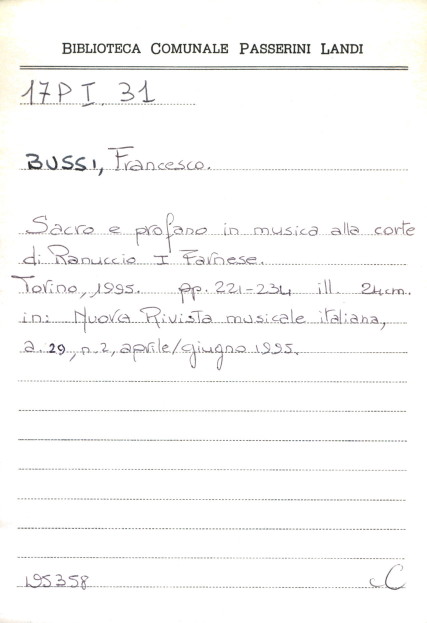 BIBLIOTECA COMUNALE PASSERINI LANDI
17 P I 31
BUSSI, Francesco.
Sacro e profano in musica alla corte
di Ranuccio I Farnese.
Torino, 1995. pp. 221-234 ill. 24cm.
in: Nuova Rivista musicale italiana,
a. 29, n. 2, aprile/giugno 1995.
195358 C